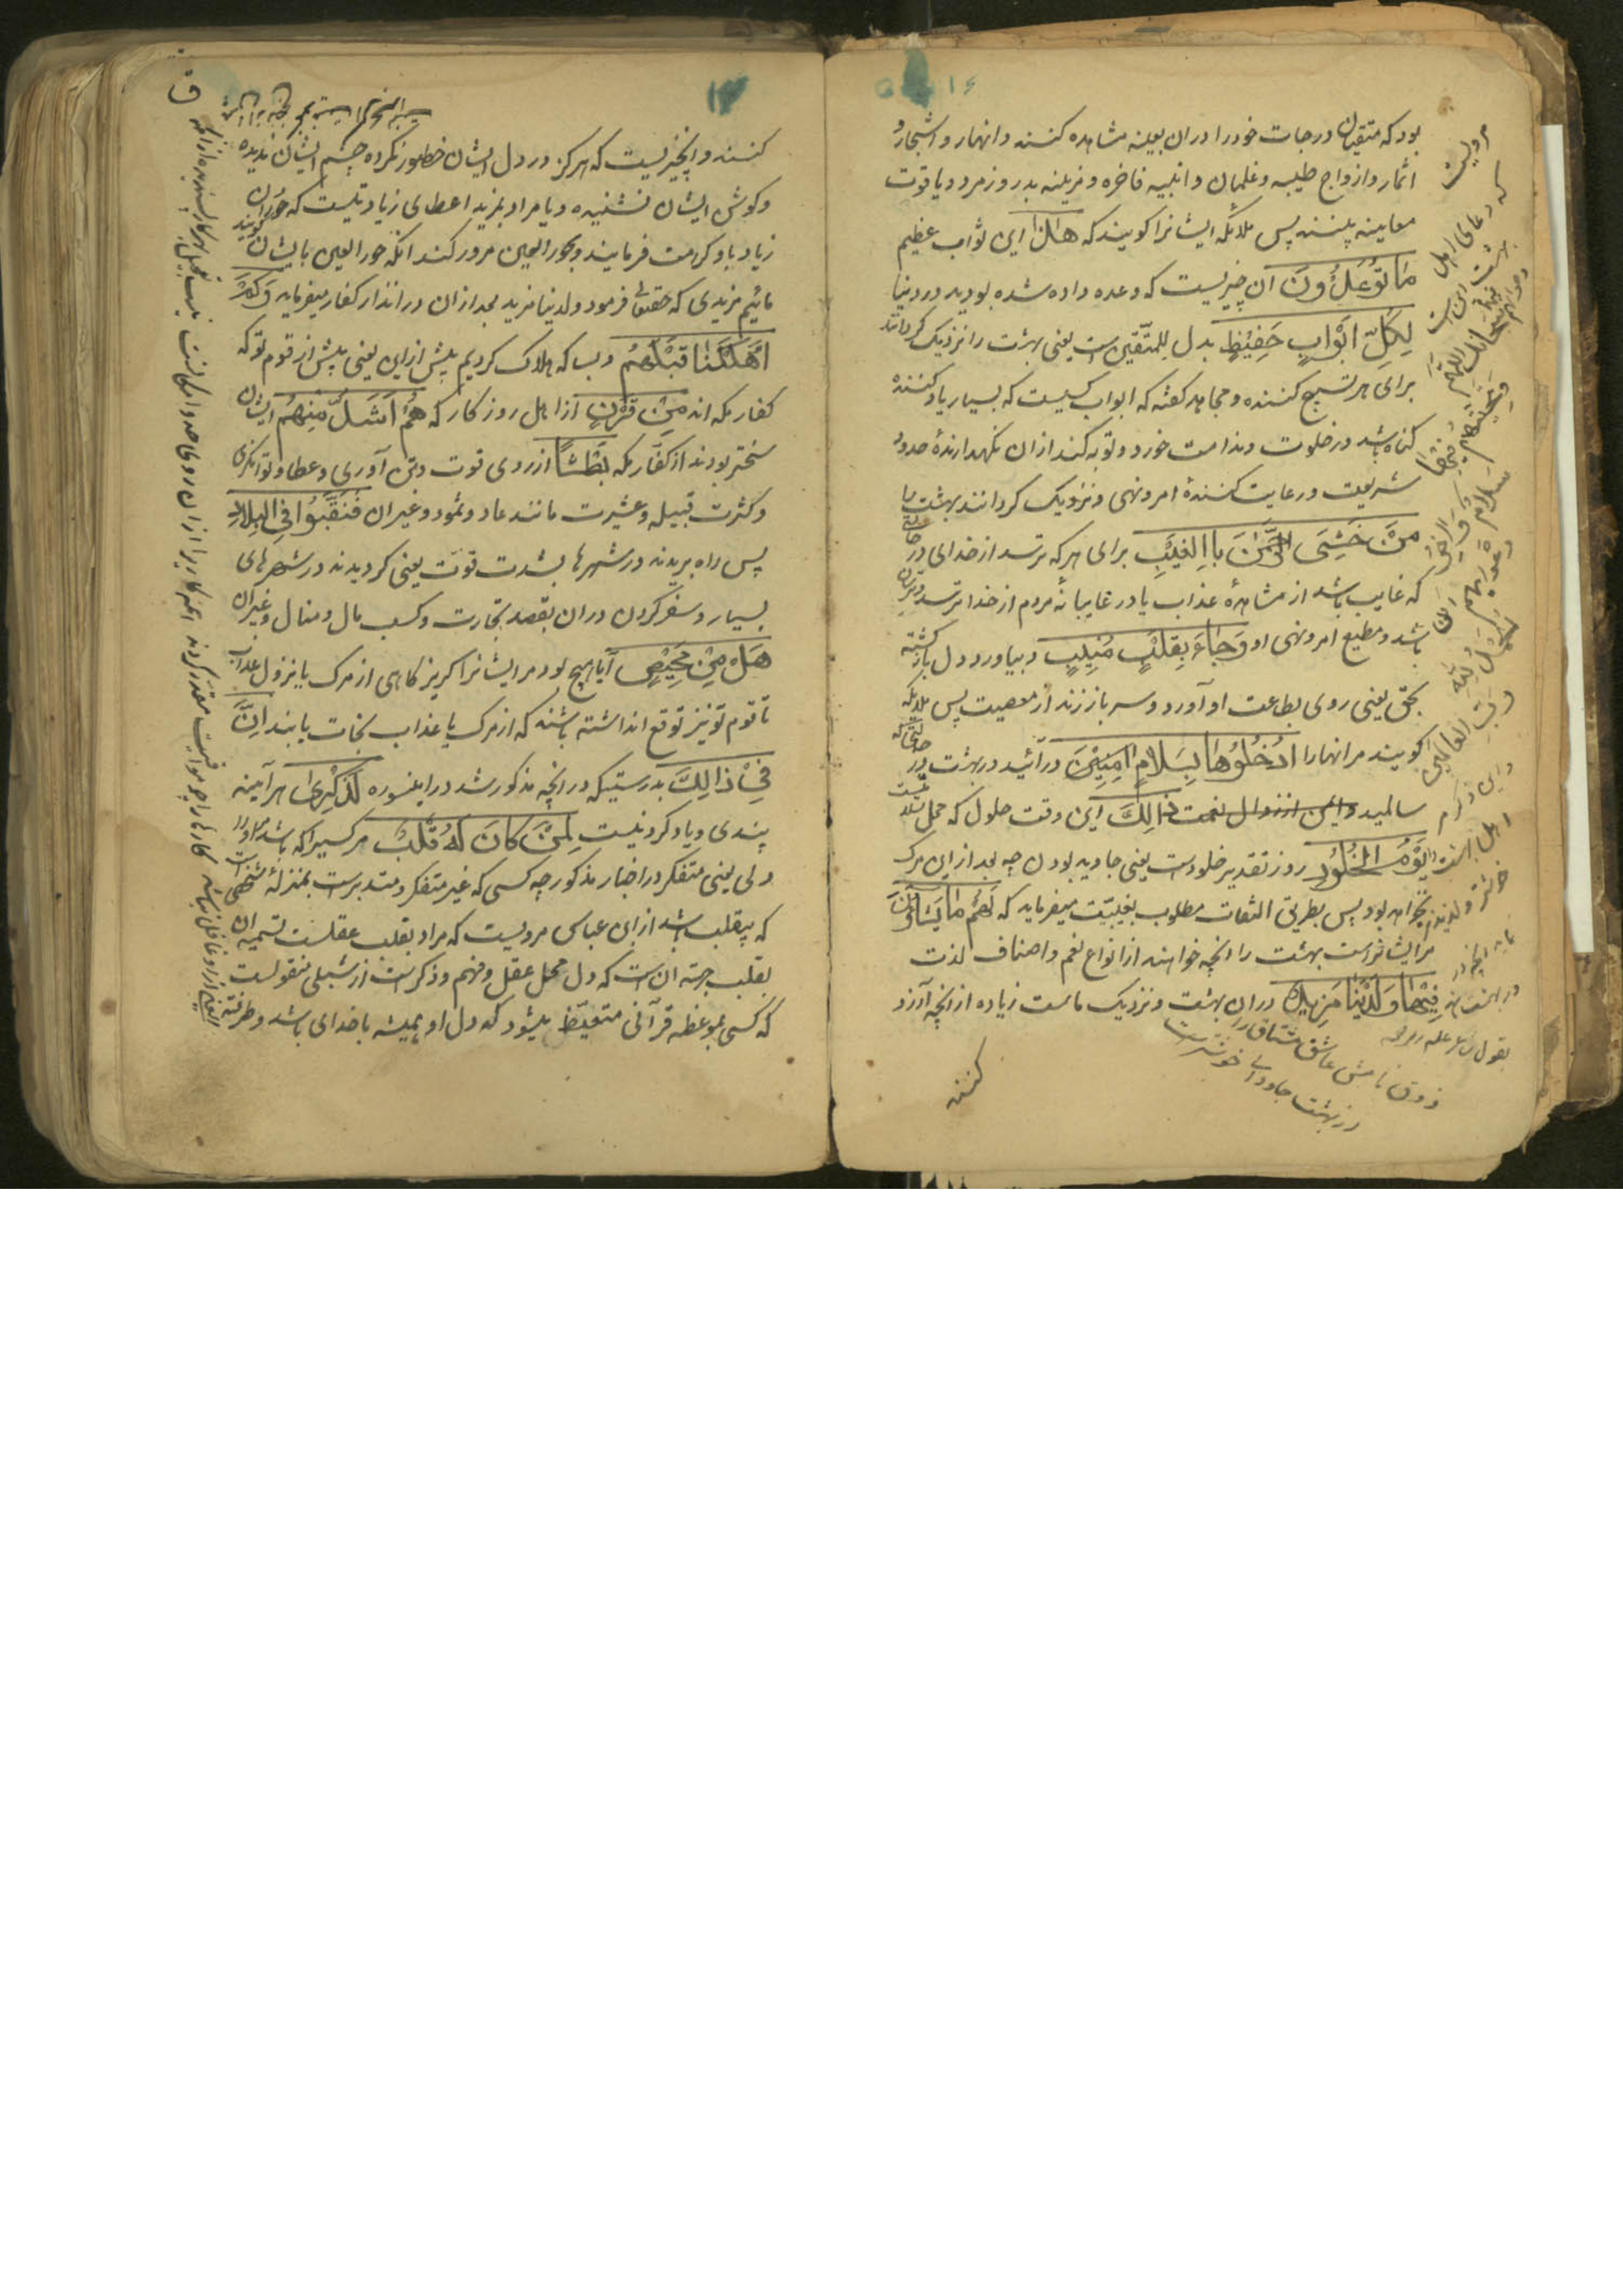 بود که متقیان درجات خود را دران بعینه مشاهده کنند و انهار و اشجار و
اثمار و ازواج طیبه و غلمان و ابنیه فاخره و مزینه بدر و زمرد و یاقوت
معاینه بینند پس ملائکه ایشانرا کویند که هٰذَا این ثواب عظیم
مَا تُوْعَدُوْنَ ان چیزیست که وعده داده شده بودید در دنیا
لِكُلِّ اَوَّابٍ حَفِيْظٍ بدل للمتّقین ست یعنی بهشت را نزدیک کردانند
برای هر تسبیح کننده و مجاهد کفته که اواب کسیست که بسیار یاد کننده
کناه باشد در خلوت و ندامت خورد و توبه کند ازان نکهدارندهٔ حدود
شریعت و رعایت کنندهٔ امر و نهی و نزدیک کردانند بهشت را
مَنْ خَشِىَ الرَّحْمٰنَ بِاالْغَيْبِ برای هر که ترسد از خدای در حالتی
که غایب باشد از مشاهدهٔ عذاب یا در غایبانه مردم از خدا ترسد
باشد و مطیع امر و نهی او وَجَاءَ بِقَلْبٍ مُنِيْبٍ و بیاورد دل باز کشته
بحق یعنی روی بطاعت او آورد و سر باز زند از معصیت پس ملائکه
کویند مر انها را اُدْخُلُوْهَا بِسَلَامٍ اٰمِنِيْنَ درآئید در بهشت در حالتی که
سالمید و ایمن از زوال نعمت ذٰالِكَ این وقت حلول که محل
يَوْمُ الْخُلُوْدِ روز تقدیر خلودست یعنی جاوید بودن چه بعد ازین مرک
نخواهد بود پس بطریق التفات مطلوب بغیبت میفرماید که لَهُمْ مَا يَشَاؤُنَ
مر ایشانراست بهشت را انچه خواهند از انواع نعم و اصناف لذت
فِيْهَا وَلَدَيْنَا مَزِيْدٌ دران بهشت و نزدیک ماست زیاده از انچه آرزو
کنند
مرویست
که دعای اهل
بهشت این است
سبحانك اللهم
وتحيتهم فيها
سلام
و آخر دعويهم ان
الحمد لله
رب العالمين
ذوق نامش عاشق مشتاق را
از بهشت جاودانی خوشترست
کنند و انچیزیست که هرکز در دل ایشان خطور نکرده و چشم ایشان ندیده
و کوش ایشان نشنیده و یا مراد بمزید اعطای زیادتیست که حوران
زیاد باو کرامت فرمایند و بحور العین مرور کنند انکه حور العین بایشان کویند
مائیم مزیدی که حقتعالی فرمود ولدینا مزید بعد ازان در انذار کفار میفرماید وَ كَمْ
اَهْلَكْنَا قَبْلَهُمْ و بسا که هلاک کردیم پیش از این یعنی پیش از قوم تو که
کفار مکه اند مِنْ قَرْنٍ از اهل روزکار که هُمْ اَشَدُّ مِنْهُمْ ایشان
سختر بودند از کفار مکه بَطْشًا از روی قوت و تن آوری و عطا و توانکری
و کثرت قبیله و عشیرت مانند عاد و ثمود و غیر ان فَنَقَّبُوْا فِى الْبِلَادِ
پس راه بریدند در شهرها بشدت قوّت یعنی کردیدند در شهرهای
بسیار و سفر کردن دران بقصد تجارت و کسب مال و منال و غیر ان
هَلْ مِنْ مَحِيْصٍ آیا هیچ بود مر ایشانرا کریزکاهی از مرک یا نزول عذاب
تا قوم تو نیز توقع انداشته باشند که از مرک یا عذاب نجات یابند اِنَّ
فِىْ ذَالِكَ بدرستیکه در انچه مذکور شد در اینسوره لَذِكْرٰى هر آینه
پندی و یاد کردنیست لِمَنْ كَانَ لَهُ قَلْبٌ مر کسیرا که باشد او را
دلی یعنی متفکر در اخبار مذکور چه کسی که غیر متفکر و متدبرست بمنزلهٔ شخصی است
که بیقلب باشد از ابن عباس مرویست که مراد بقلب عقلست تسمیه ان
بقلب بجهة ان ست که دل محل عقل و فهم و ذکرست از شبلی منقولست
که کسی بموعظه قرآنی متعظ میشود که دل او همیشه با خدای باشد و طرفة